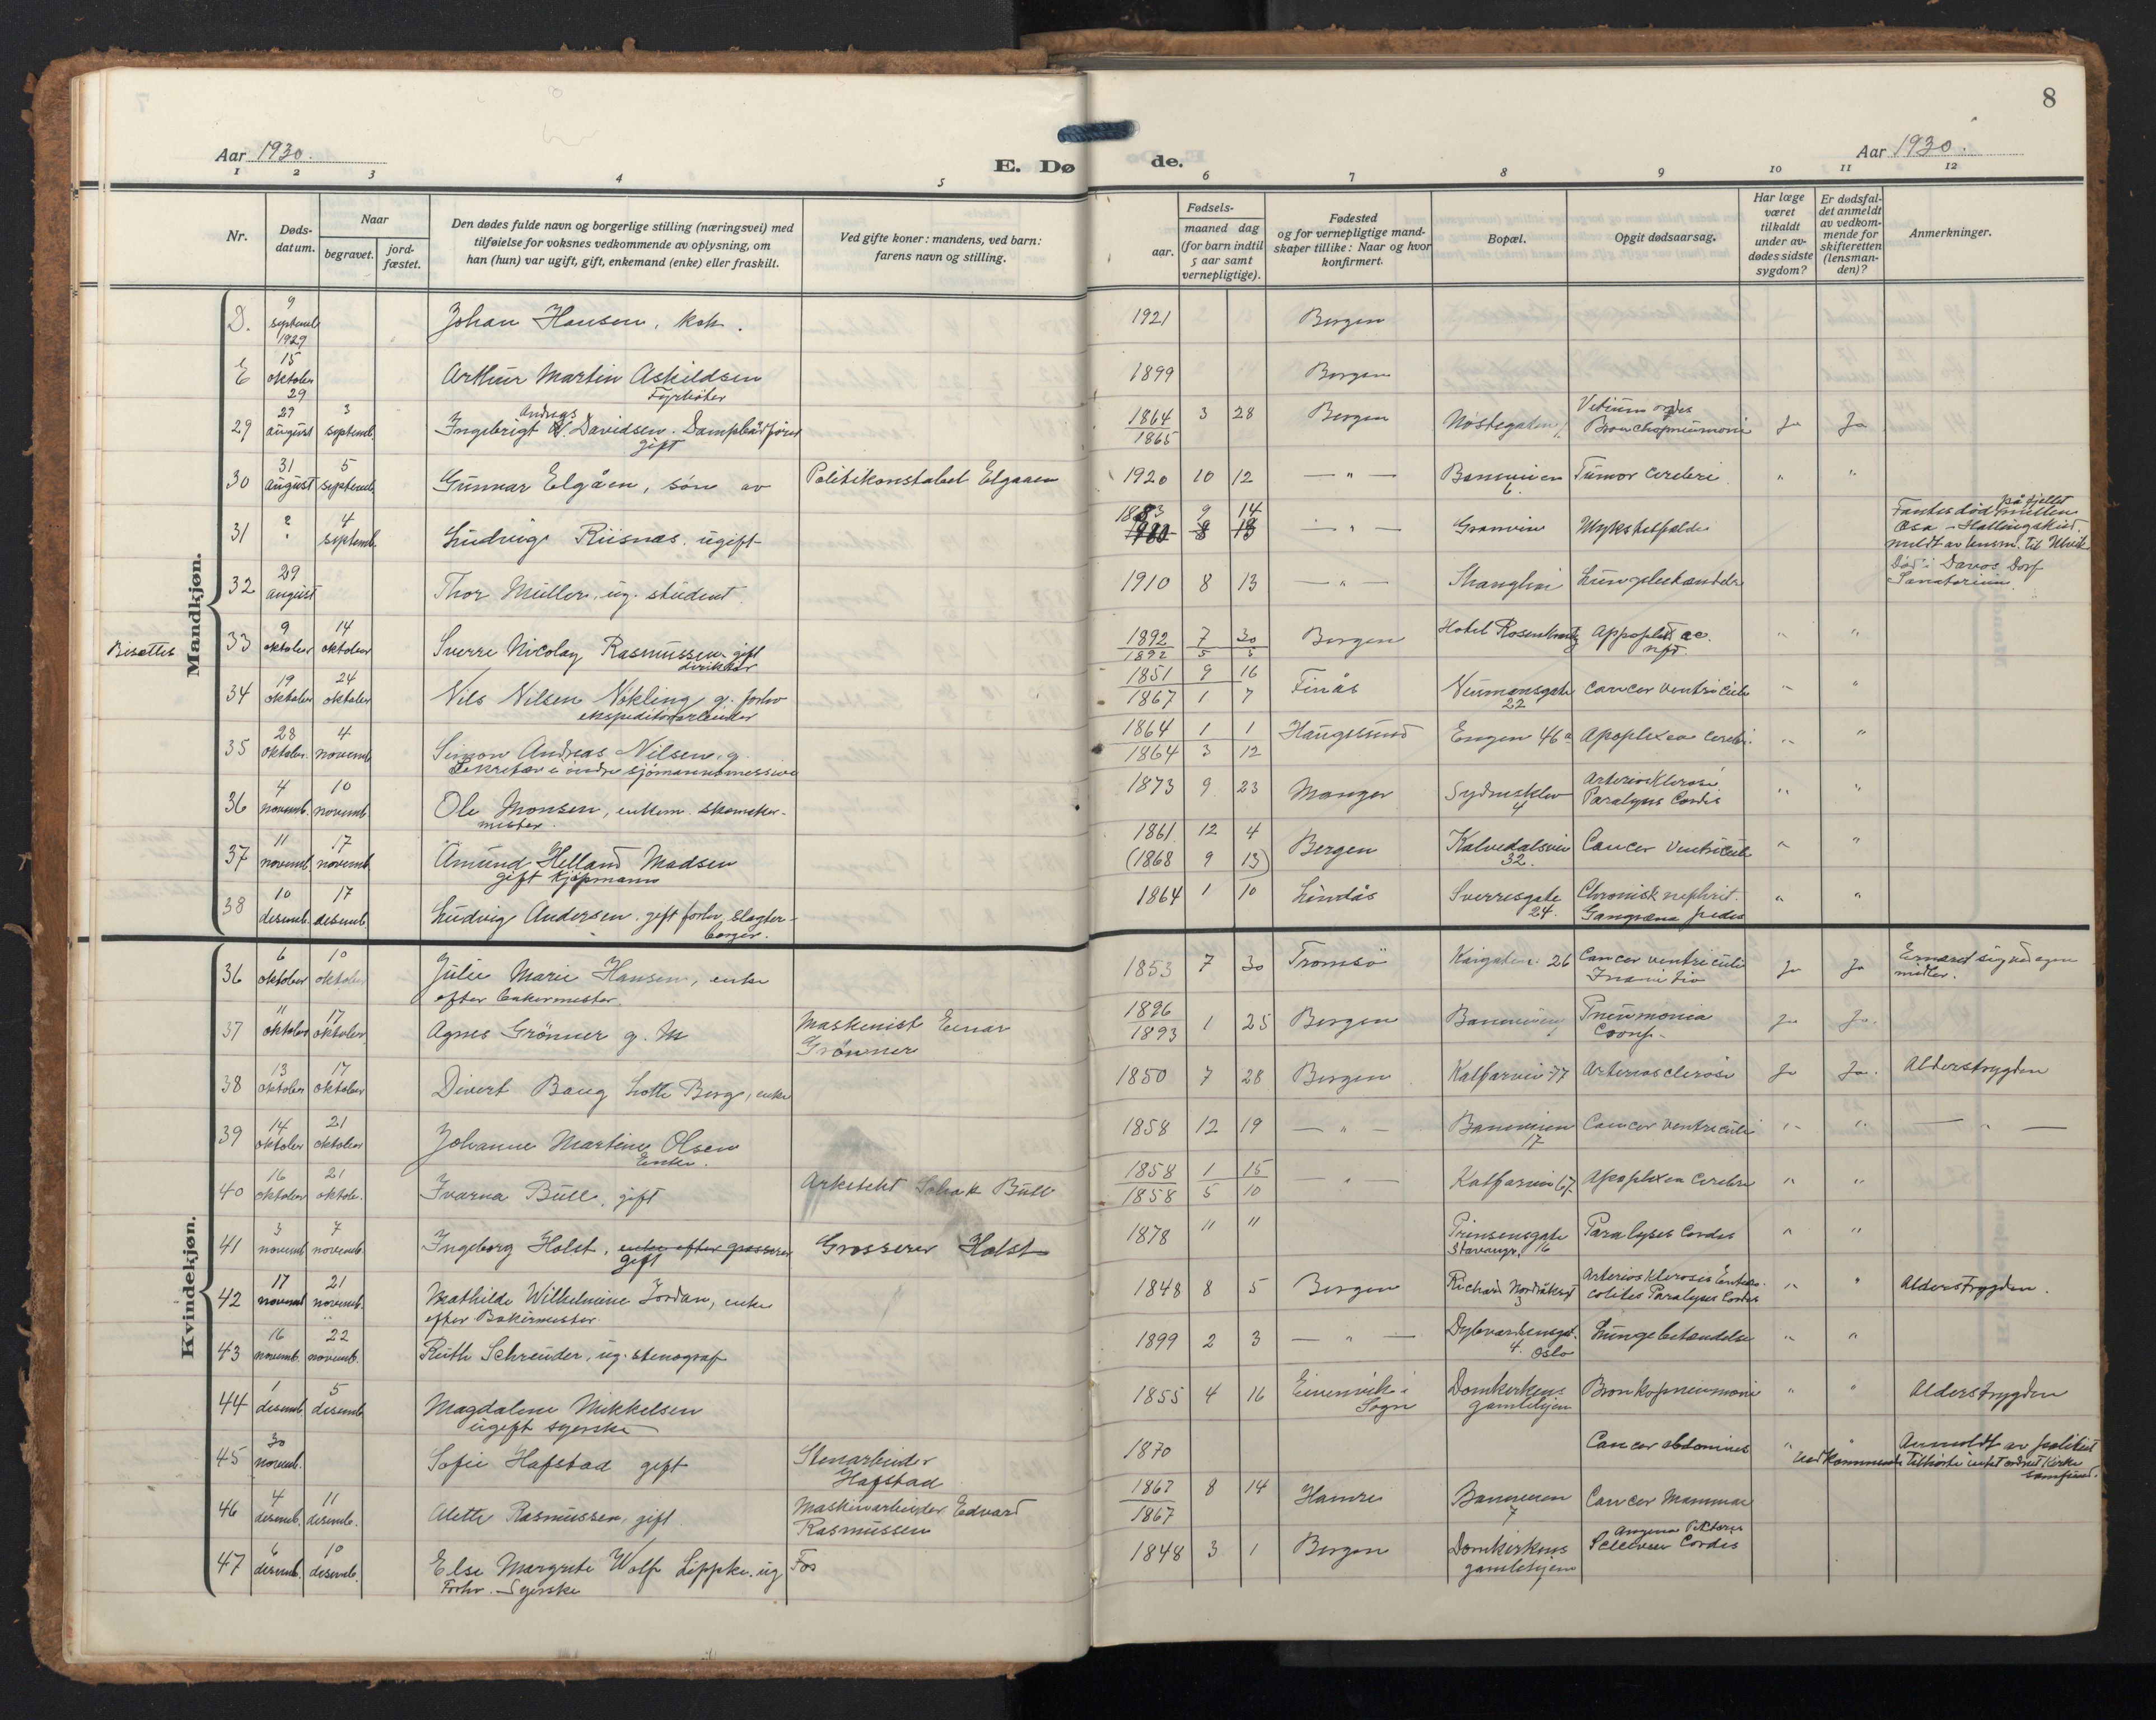 8
Aar 1930.
E. Dø
de.
Aar 1930.
1 2 3 4 5
6 7 8 9 10 11 12
Nr.
Døds-
datum.
Naar
begravet.
jord-
fæstet.
Den dødes fulde navn og borgerlige stilling (næringsvei) med
tilføielse for voksnes vedkommende av oplysning, om
han (hun) var ugift, gift, enkemand (enke) eller fraskilt.
Ved gifte koner: mandens, ved barn:
farens navn og stilling.
Fødsels-
aar.
maaned dag
(for barn indtil
5 aar samt
vernepligtige).
Fødested
og for vernepligtige mand-
skaper tillike: Naar og hvor
konfirmert.
Bopæl.
Opgit dødsaarsag.
Har læge
været
tilkaldt
under av-
dødes sidste
sygdom?
Er dødsfal-
det anmeldt
av vedkom-
mende for
skifteretten
(lensman-
den)?
Anmerkninger.
Mandkjøn.
D. 9 septemb 1929 Johan Hansen, kok. 1921 Bergen
E 15 oktober 29 Arthur Martin Askildsen
Fyrbøter 1899 Bergen
29 29 august 3 septemb. Ingebrigt Andreas Davidsen. Dampbådfører
gift 1864 3 28 Bergen Nøstegaten Vitium cordis
1865 Bronchopneumoni Ja Ja
30 31 august 5 septemb. Gunnar Elgåen, søn av Politikonstabel Elgaaen 1920 10 12 — " — Tumor cerebri " "
31 ? 4 septemb. Ludvig Riisnæs. ugift 1883 9 14 — " — Granvin Ulykkestilfælde Fandes død på fjellet mellem
1880 8 13 Osa - Hallingskeid.
meldt av lensm. til Ulvik
32 29 august Thor Müller, ug. student. 1910 8 13 — " — Shanghai Lungebetændelse Død i Davos Dorf
Sanatorium
Bisættes 33 9 oktober 14 oktober Sverre Nicolay Rasmussen gift
direktør 1892 7 30 Bergen Hotel Rosenkrantz " "
1892 5 5
34 19 oktober 24 oktober Nils Nilsen Nøkling g. forhv
ekspeditørarbeider 1851 9 16 Finås Neumansgate cancer ventriculi " "
1867 1 7 22
35 28 oktober. 4 novemb Simon Andreas Nilsen, g.
Sekretær i indre sjømannsmission 1864 1 1 Haugesund Engen 46a Apoplexia cerebri. " "
1864 3 12
36 4 novemb. 10 novemb. Ole Monsen, enkem. skomaker-
mester. 1873 9 23 Manger Sydneskleiv Arteriosklerose
4 Paralysis Cordis " "
37 11 novemb. 17 novemb. Amund Helland Madsen
gift kjøpmann 1861 12 4 Bergen Kalvedalsvei Cancer Ventriculi " "
(1868 9 13) 32.
38 10 desemb. 17 desemb. Ludvig Andersen. gift forhv. slagter-
borger. 1864 1 10 Lindås Sverresgate Chronisk nephrit. " "
24. Gangræna pedis
Kvindekjøn.
36 6 oktober 10 oktober Julie Marie Hansen, enke
efter bakermester. 1853 7 30 Tromsö Kaigaten 26 Cancer ventriculi Ja Ja Ernæret sig ved egne
Inanitio midler.
37 11 oktober 17 oktober Agnes Grönner g. M Maskinist Einar
Grönner 1896 1 25 Bergen Pneumonia Ja Ja.
1893 Croup.
38 13 oktober 17 oktober Divert Baug Lotte Berg, enke 1850 7 28 Bergen Kalfarvei 77 Arteriosclerose Ja Ja. Alderstrygden
39 14 oktober 21 oktober Johanne Martine Olsen
Enke. 1858 12 19 — " — 17 Cancer ventriculi " " — " —
40 16 oktober 21 oktob. Ivarna Bull. gift Arkitekt Schak Bull 1858 1 15 — " — Kalfarvei 67. Apoplexia Cerebri " "
1858 5 10
41 3 novemb 7 novemb. Ingeborg Holst, enke efter grosserer
gift Grosserer Holst 1878 " " Prinsensgate Paralysis Cordis " "
Stavanger. 16
42 17 novemb 21 novemb. Mathilde Wilhelmine Jordan, enke
efter Bakermester. 1848 8 5 Bergen Richard Nordråksgt Arteriosklerosis Entero- " " Alderstrygden.
3 colites Paralyses Cordis
43 16 novemb. 22 novemb. Ruth Schreuder, ug. stenograf 1899 2 3 — " — Dybwadsengt. Lungebetændelse " "
4. Oslo
44 1 desemb. 5 desemb. Magdalene Mikkelsen
ugift syerske 1855 4 16 Eivenvik i Domkirkens Bronkopneumoni " " Alderstrygden
Sogn gamlehjem
45 30 novemb. Sofie Hafstad gift Stenarbeider
Hafstad 1870 Cancer abdominis " " Anmeldt av politiet
Vedkommende tilhørte intet ordnet kirke
samfund.
46 4 desemb. 11 desemb. Alette Rasmussen, gift. Maskinarbeider Edvard
Rasmussen 1867 8 14 Hamre 7 Cancer Mammae
1867
47 6 desemb. 10 desemb. Else Margrete Wolf Lippke. ug
Forhv. Syerske Fos 1848 3 1 Bergen Domkirkens Angina Pectoris
gamlehjem Cordis